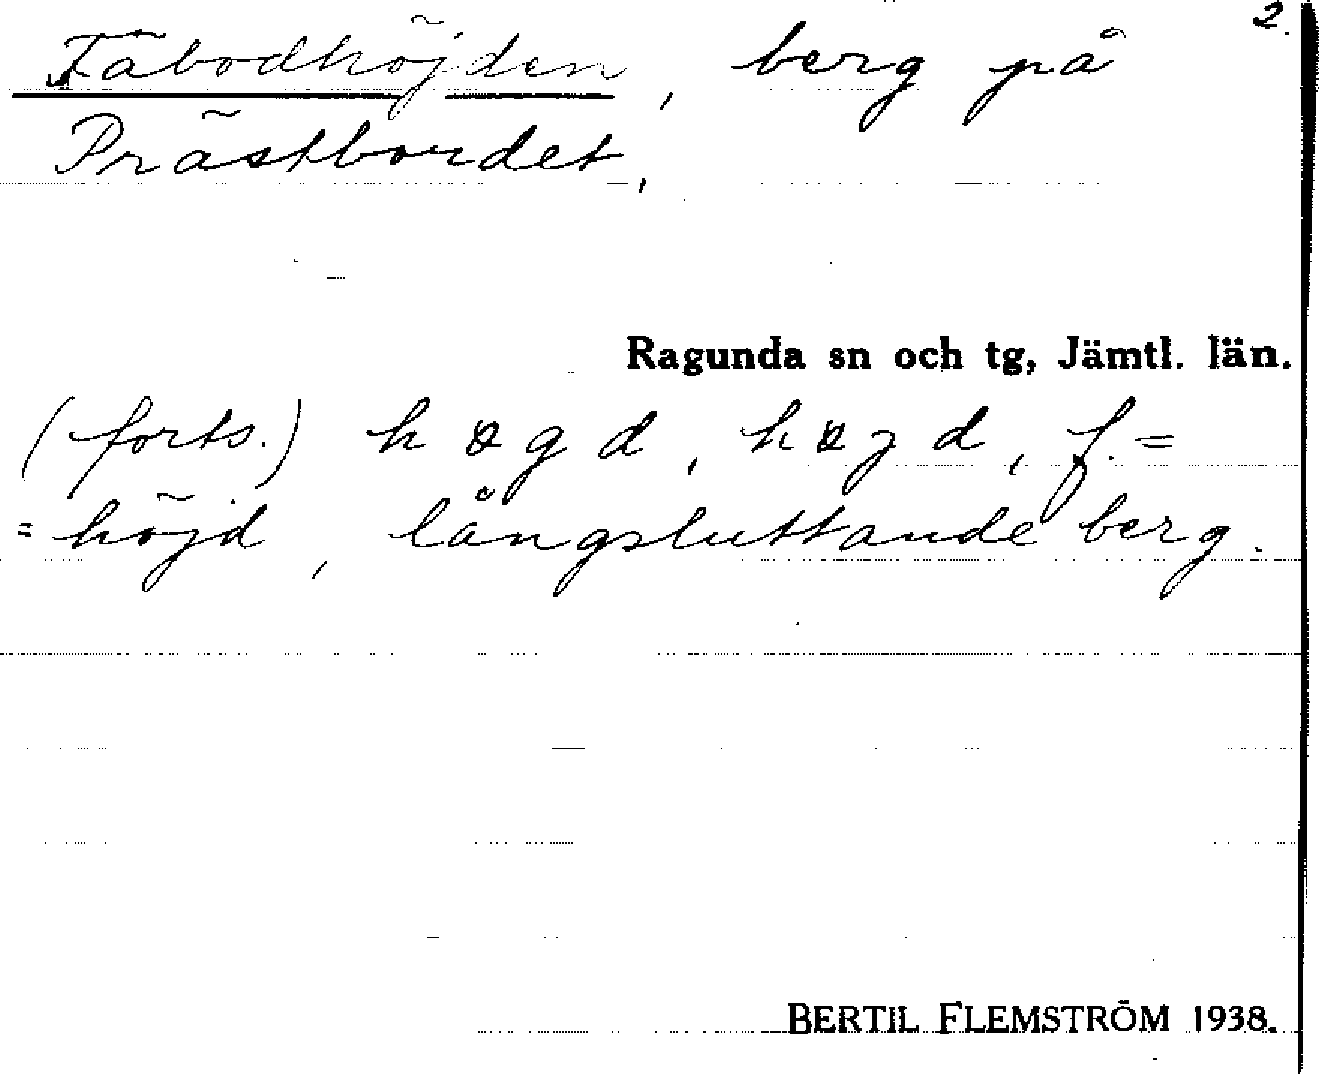 2.
Fäbodhöjden, berg på
Prästbordet,
Ragunda sn och tg, Jämtl. län.
(forts.) høgd, højd, f. =
= höjd, långsluttande berg.
BERTIL FLEMSTRÖM 1938.